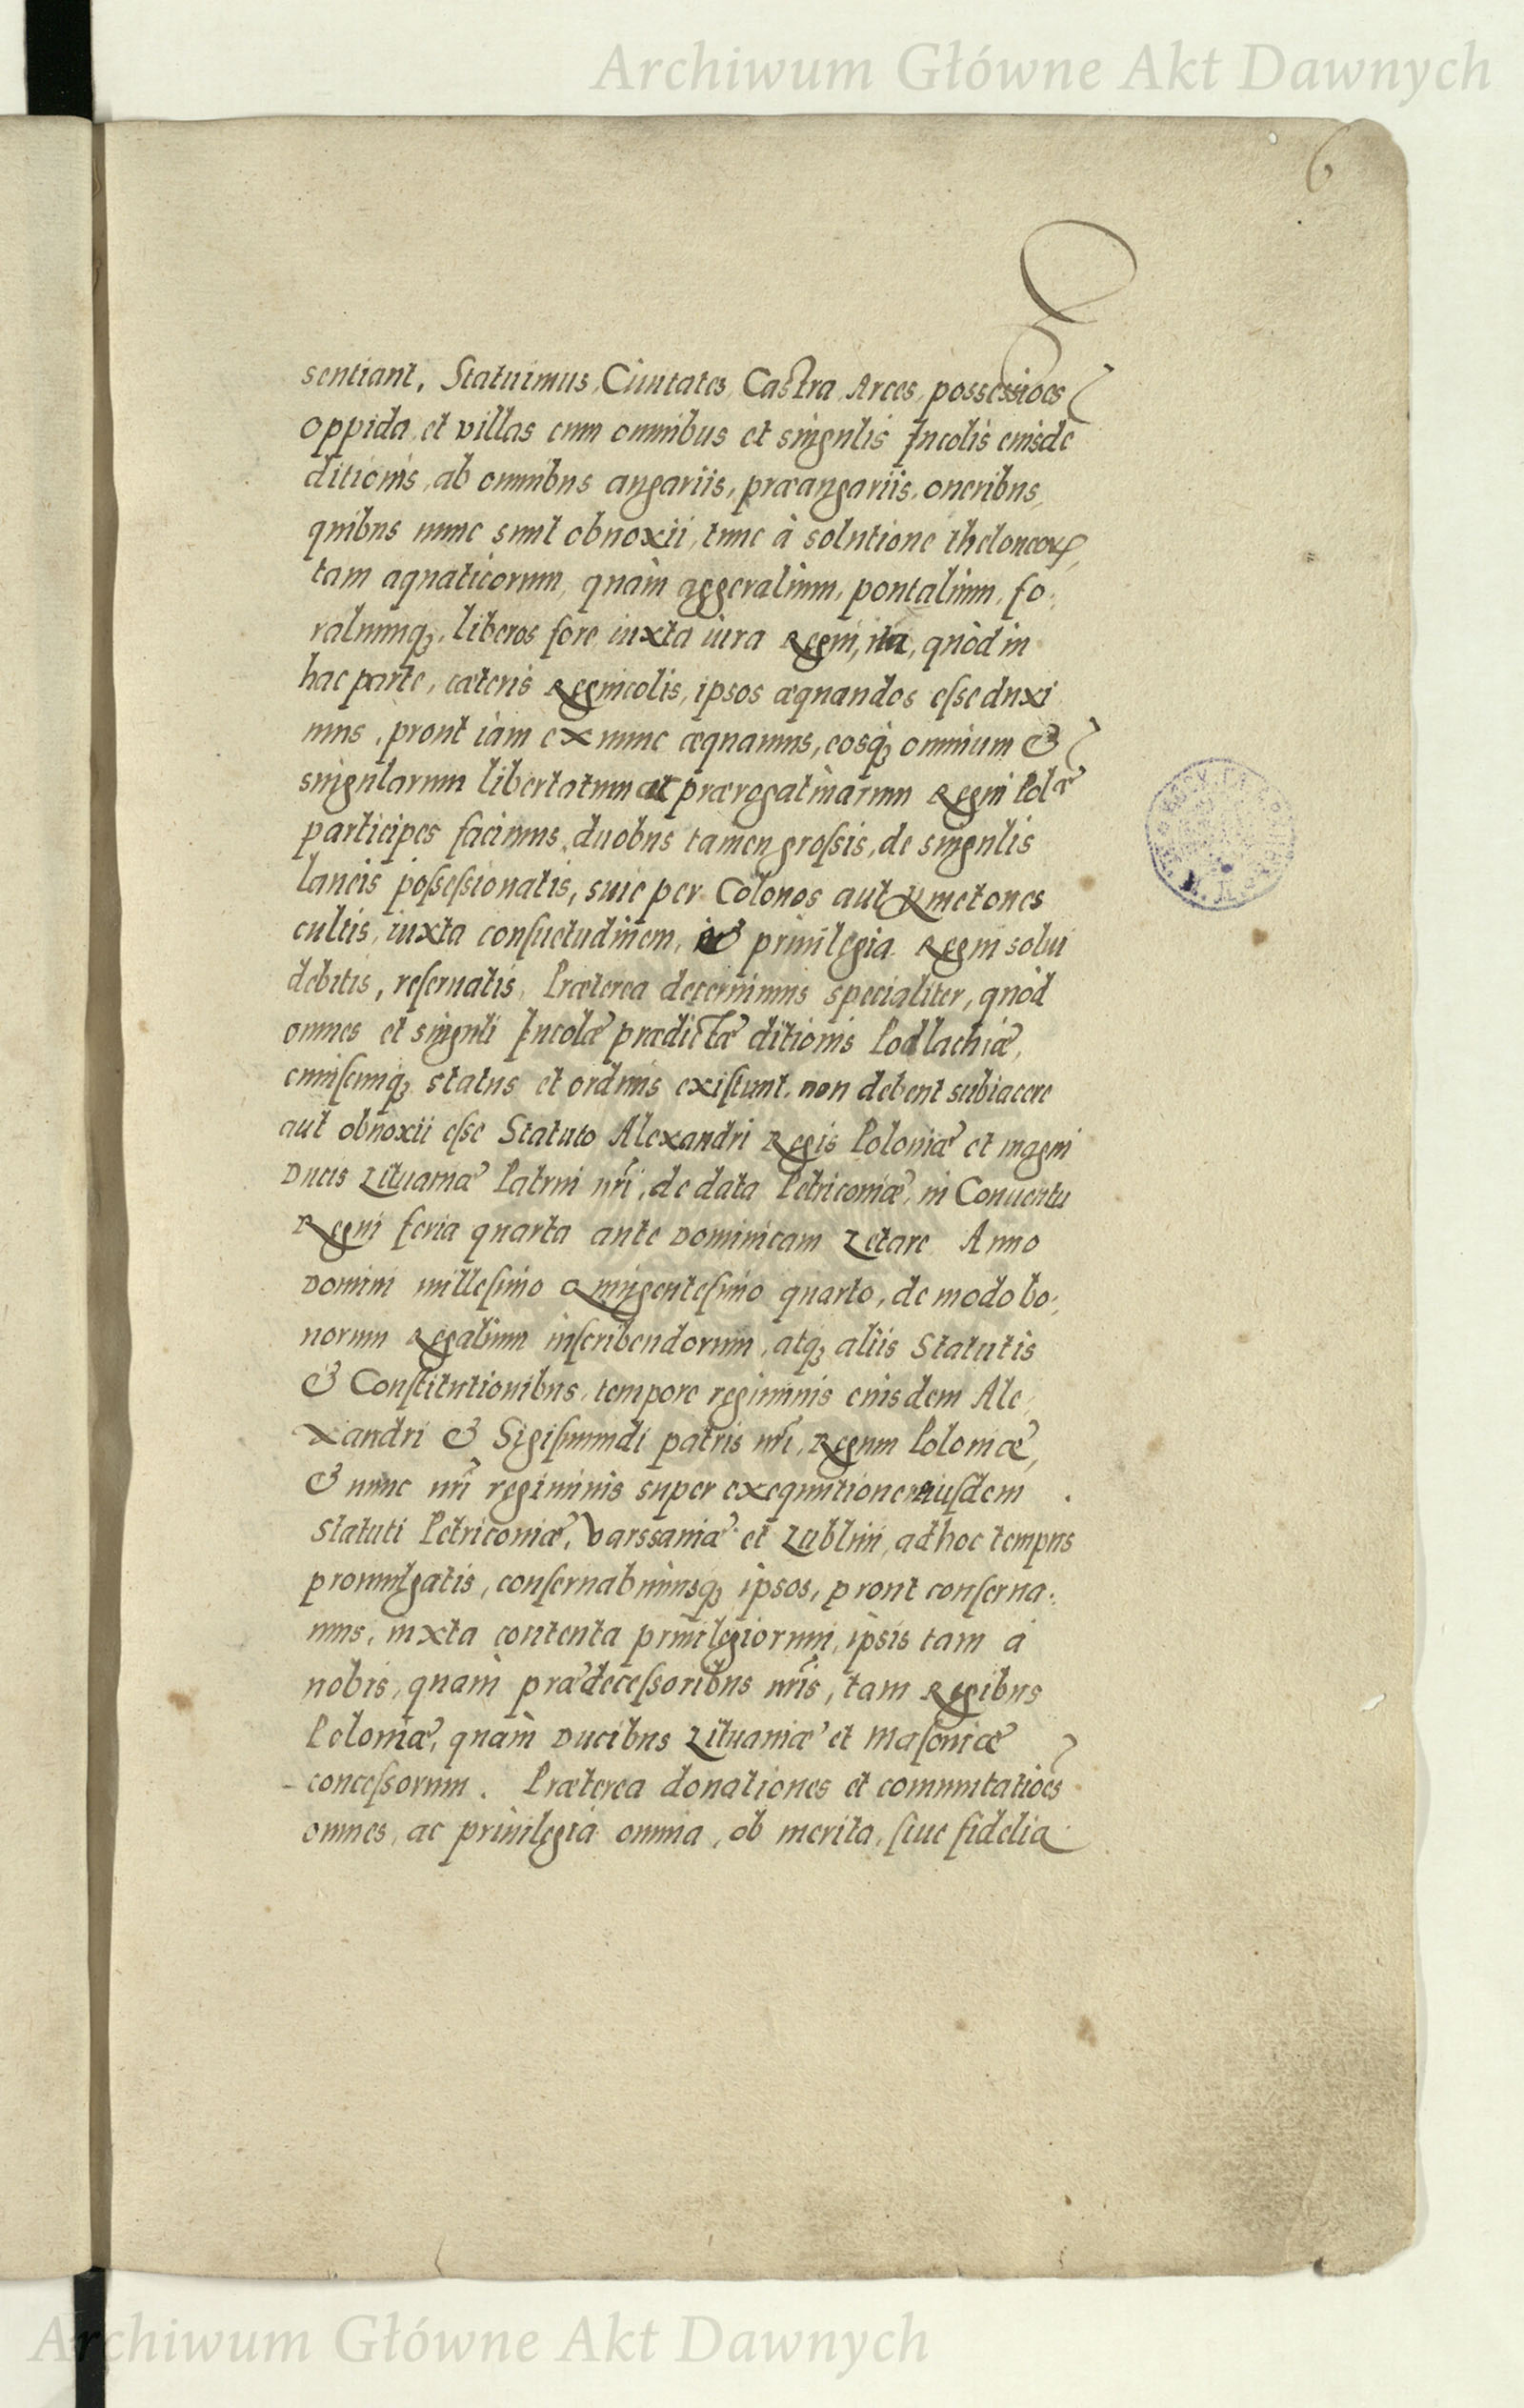 Archiwum Główne Akt Dawnych
6
sentiant, Statuimus, Ciuitates, Castra, Arces, possessiões
oppida, et villas cum omnibus et singulis Incolis eiusdē
ditionis, ab omnibus angariis, præangariis, oneribus,
quibus nunc sunt obnoxii, tunc à solutione theloneoꝝ,
tam aquaticorum, quàm aggeralium, pontalium, fo:
raliumq;, liberos fore, iuxta iura Regni, ita, quòd in
hac parte, cæteris Regnicolis, ipsos æquandos eſse duxi
mus, prout iàm ex nunc æquamus, eosq; omnium &
singularum libertatum ac prærogatiuarum Regni Polæ
participes facimus, duobus tamen groſsis, de singulis
laneis poſseſsionatis, siue per Colonos aut Kmetones
cultis, iuxta conſuetudinem, & priuilegia Regni solui
debitis, reſeruatis. Præterea decernimus specialiter, quòd
omnes et singuli Incolæ prædictæ ditionis Podlachiæ,
cuiuſcunq; status et ordinis exiſtunt, non debent subiacere
aut obnoxii eſse Statuto Alexandri Regis Poloniæ et magni
Ducis Lituaniæ Patrui nr̃i, de data Petricouiæ, in Conuentu
Regni feria quarta ante Dominicam Letare Anno
Domini milleſimo Quingenteſimo quarto, de modo bo:
norum Regalium inſcribendorum, atq; aliis Statutis
& Conſtitutionibus, tempore regiminis eiusdem Ale
xandri & Sigiſmundi patris nr̃i, Regum Poloniæ,
& nunc nr̃i regiminis super exequutione eiuſdem
Statuti Petricouiæ, Varssauiæ et Lublini, ad hoc tempus
promulgatis, conſeruabimusq; ipsos, prout conſerua:
mus, iuxta contenta priuilegiorum, ipsis tam à
nobis, quàm prædeceſsoribus nr̃is, tam Regibus
Poloniæ, quàm Ducibus Lituaniæ et Maſouiæ
conceſsorum. Præterea donationes et comutatiões
omnes, ac priuilegia omnia, ob merita, ſiue fidelia
Archiwum Główne Akt Dawnych